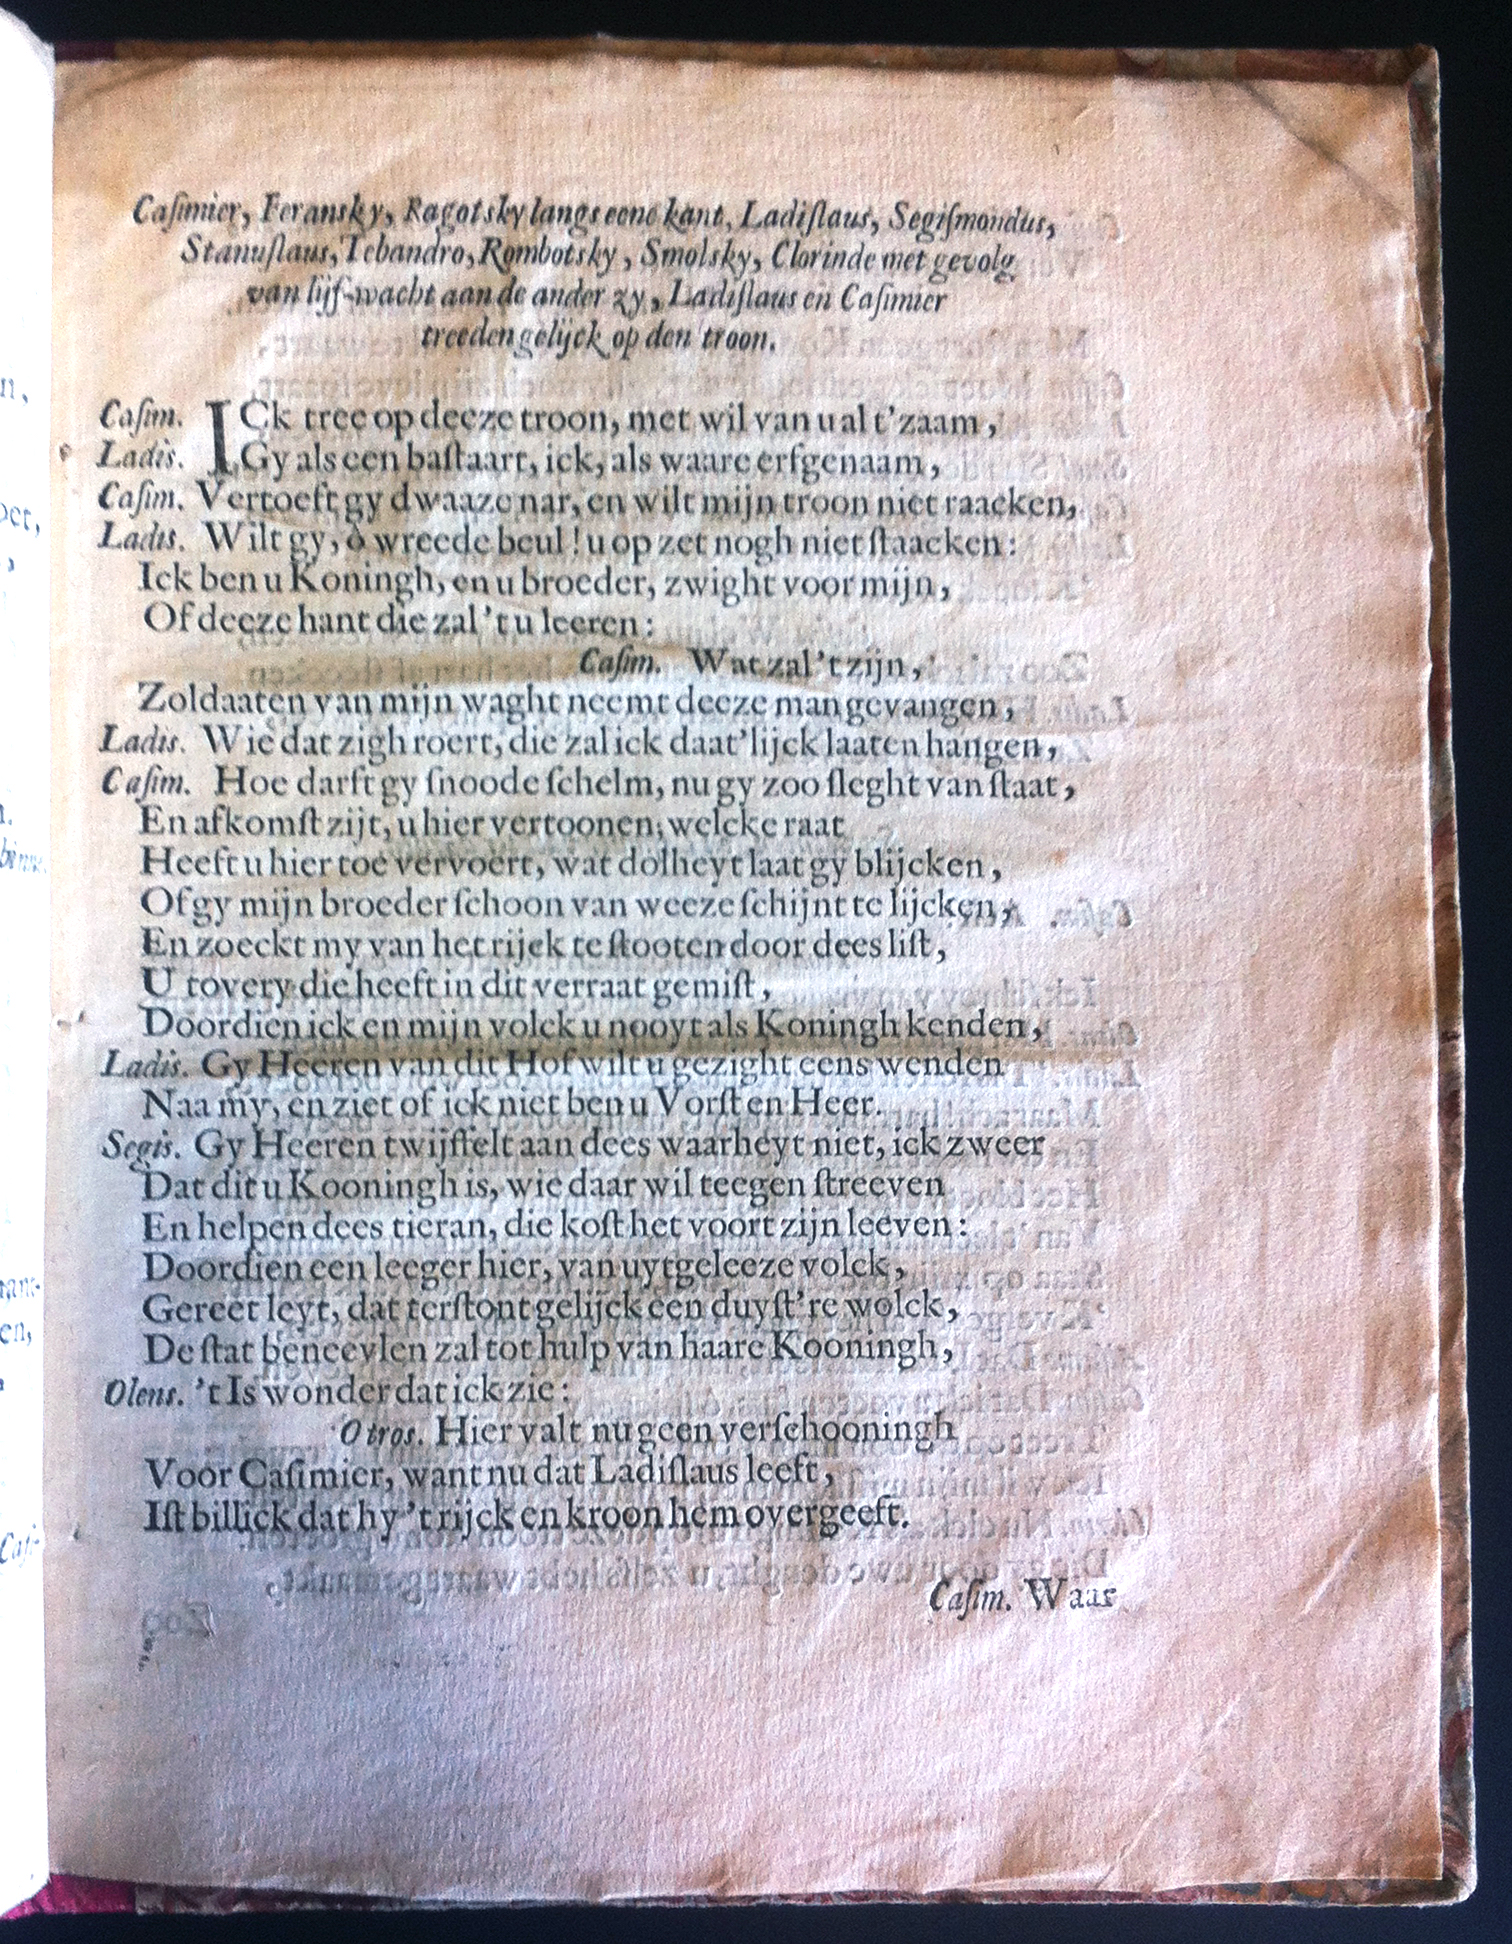 Caſimier, Feransky, Ragotsky langs eene kant, Ladiſlaus, Segiſmondus,
Stanuſlaus, Tebandro, Rombotsky, Smolsky, Clorinde met gevolg
van lijf-wacht aan de ander zy, Ladiſlaus en Caſimier
treeden gelijck op den troon.
Caſim. ICk tree op deeze troon, met wil van u al t'zaam,
Ladis. Gy als een baſtaart, ick, als waare erfgenaam,
Caſim. Vertoeft gy dwaaze nar, en wilt mijn troon niet raacken,
Ladis. Wilt gy, ô wreede beul! u op zet nogh niet ſtaacken:
Ick ben u Koningh, en u broeder, zwight voor mijn,
Of deeze hant die zal 't u leeren:
Caſim. Wat zal 't zijn,
Zoldaaten van mijn waght neemt deeze man gevangen,
Ladis. Wie dat zigh roert, die zal ick daat'lijck laaten hangen,
Caſim. Hoe darft gy ſnoode ſchelm, nu gy zoo ſleght van ſtaat,
En afkomſt zijt, u hier vertoonen; welcke raat
Heeft u hier toe vervoert, wat dolheyt laat gy blijcken,
Of gy mijn broeder ſchoon van weeze ſchijnt te lijcken,
En zoeckt my van het rijck te ſtooten door dees liſt,
U tovery die heeft in dit verraat gemiſt,
Doordien ick en mijn volck u nooyt als Koningh kenden,
Ladis. Gy Heeren van dit Hof wilt u gezight eens wenden
Naa my, en ziet of ick niet ben u Vorſt en Heer.
Segis. Gy Heeren twijffelt aan dees waarheyt niet, ick zweer
Dat dit u Kooningh is, wie daar wil teegen ſtreeven
En helpen dees tieran, die koſt het voort zijn leeven:
Doordien een leeger hier, van uytgeleeze volck,
Gereet leyt, dat terſtont gelijck een duyſt're wolck,
De ſtat beneevlen zal tot hulp van haare Kooningh,
Olens. 't Is wonder dat ick zie:
Otros. Hier valt nu geen verſchooningh
Voor Caſimier, want nu dat Ladiſlaus leeft,
Iſt billick dat hy 't rijck en kroon hem overgeeft.
Caſim. Waar